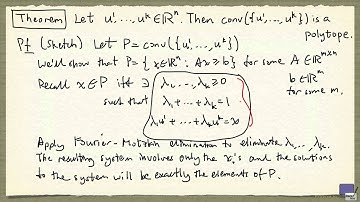 Theorem Let u¹,...,uᵏ ∈ ℝⁿ. Then conv({u¹,...,uᵏ}) is a polytope.
Pf (sketch) Let P = conv({u¹,...,uᵏ})
We'll show that P = {x ∈ ℝⁿ : Ax ≥ b} for some A ∈ ℝᵐˣⁿ
b ∈ ℝᵐ
for some m.
Recall x ∈ P iff ∃ λ₁,...,λₖ ≥ 0
such that λ₁ + ... + λₖ = 1
λ₁u¹ + ... + λₖuᵏ = x
Apply Fourier-Motzkin elimination to eliminate λ₁,...,λₖ.
The resulting system involves only the xᵢ's and the solutions
to the system will be exactly the elements of P.